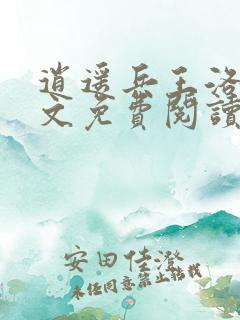 逍遥兵王洛
文免費閱讀
安田佳澄
未经同意禁止转载